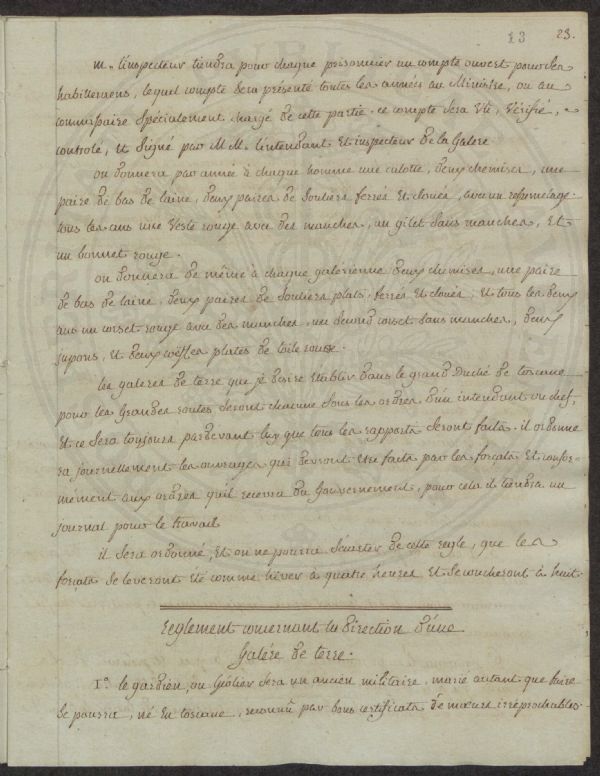 13 23.
m. l'inspecteur tiendra pour chaque prisonnier un compte ouvert pour les
habillemens, lequel compte sera présenté toutes les années au Ministre, ou au
commissaire spécialement chargé de cette partie. ce compte sera vu, vérifié,
controlé, et signé par M.M. l'intendant et inspecteur de la Galere
on donnera par année à chaque homme une culotte, deux chemises, une
paire de bas de laine, deux paires de souliers ferrés et cloués, avec un resemelage.
tous les ans une veste rouge avec des manches, un gilet sans manches, et
un bonnet rouge.
on donnera de même à chaque galérienne deux chemises, une paire
de bas de laine, deux paires de souliers plats, ferrés et cloués; et tous les deux
ans un corset rouge avec des manches, un second corset sans manches, deux
jupons, et deux coëffes plates de toile rousse.
les galeres de terre que je desire établir dans le grand Duché de toscane
pour les grandes routes seront chacune sous les ordres d'un intendant en chef,
et ce sera toujours pardevant luy que tous les rapports seront faits. il ordonne
ra journellement les ouvrages qui devront être faits par les forçats et confor-
mément aux ordres qu'il recevra du Gouvernement, pour cela il tiendra un
journal pour le travail
il sera ordonné, et on ne pourra s'écarter de cette regle, que les
forçats se leveront été comme hiver à quatre heures et se coucheront à huit.
Reglement concernant la direction d'une
Galére de terre.
1º. le gardien, ou Géolier sera un ancien militaire, marié autant que faire
se pourra, né en toscane, reconnû par bons certificats de mœurs irréprochables.